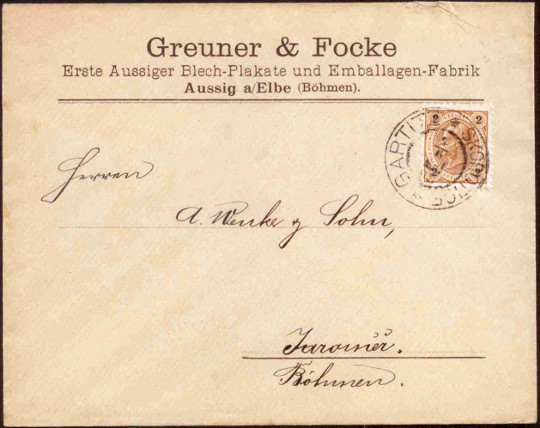 Greuner & Focke
Erste Aussiger Blech-Plakate und Emballagen-Fabrik
Aussig a/Elbe (Böhmen).
2 2
GARTITZ
Herren
A. Wenke & Sohn,
Jaroměř.
Böhmen.